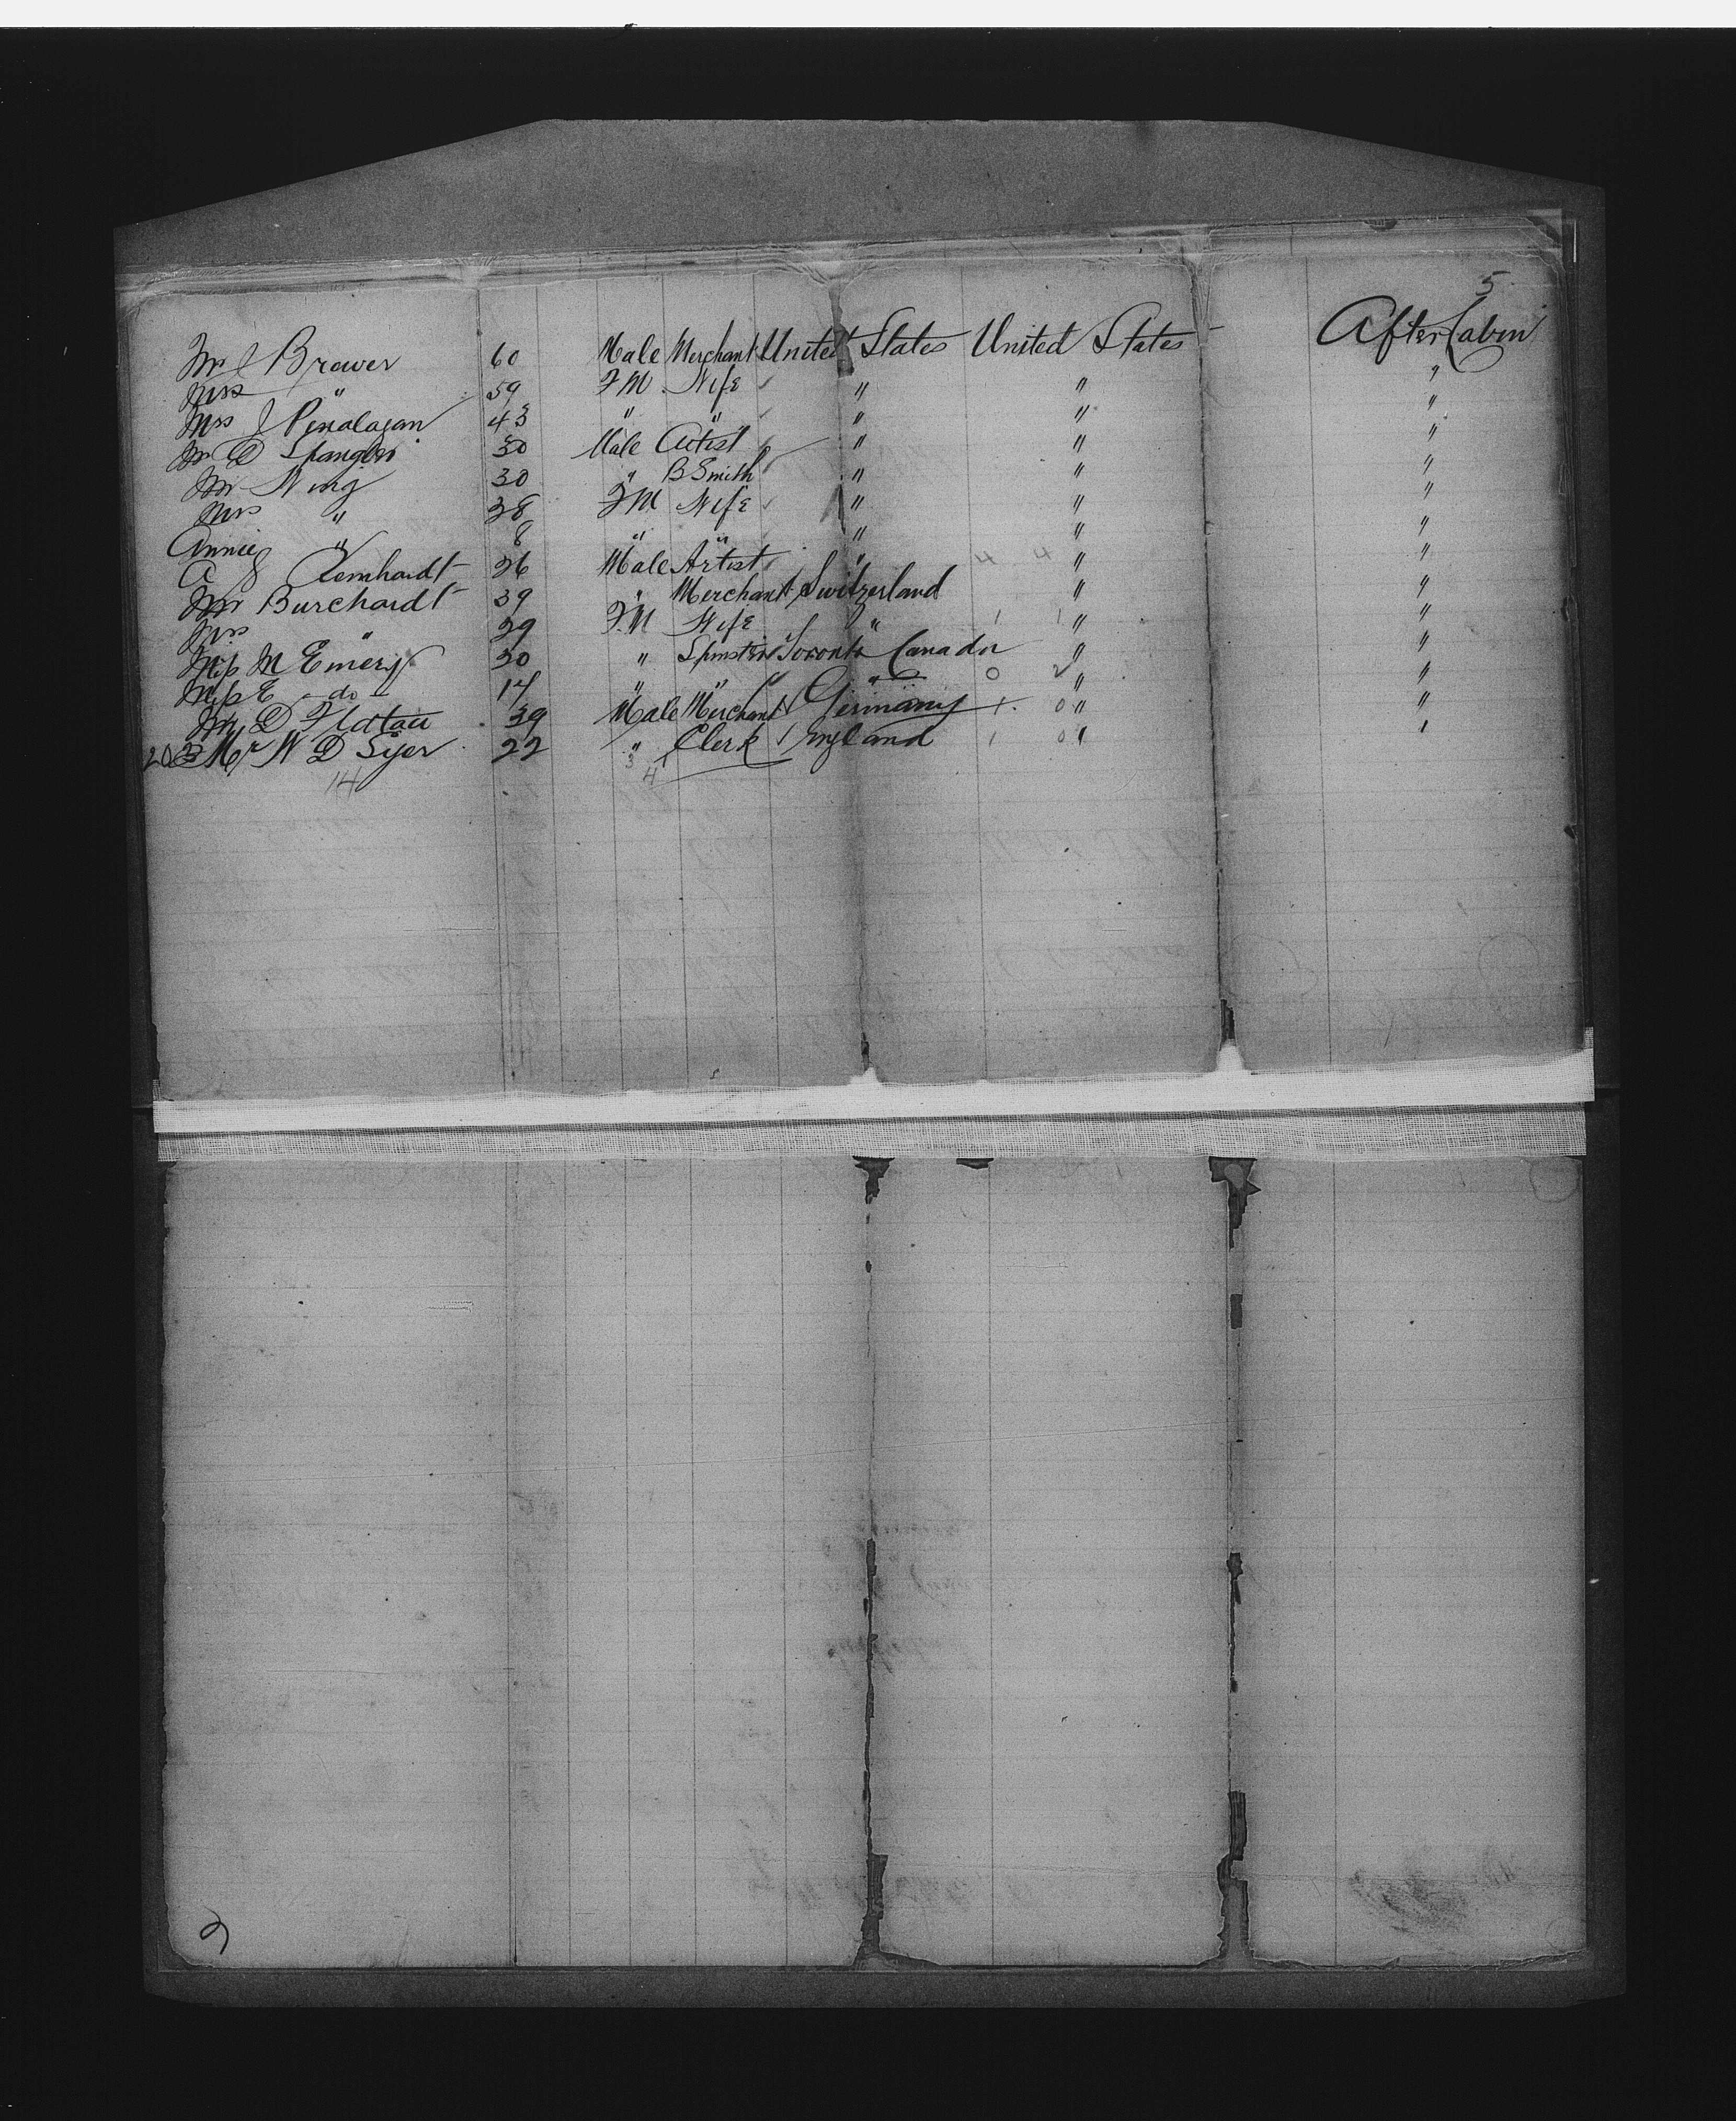 5
Mr J Brower 60 Male Merchant United States United States After Cabin
Mrs " 59 F.M. Wife " " "
Mrs J 43 " " " " "
Mr D Spangler 30 Male Artist " " "
Mr Wing 30 " B Smith " " "
Mrs " 28 F.M. Wife " " "
Annie " 8 " " " " "
A 26 Male Artist " 4 4 " "
Mr Burchardt 39 " Merchant Switzerland " "
Mrs " 29 F.M. Wife " 1 1 " "
Miss M Emery 20 " Spinster Toronto Canada " "
Miss E - do - 17 " " " 0 2 " "
Mr D Flatau 39 Male Merchant Germany 1 0 " "
Mr W D Syer 22 " Clerk England 1 0 " "
3
4
14